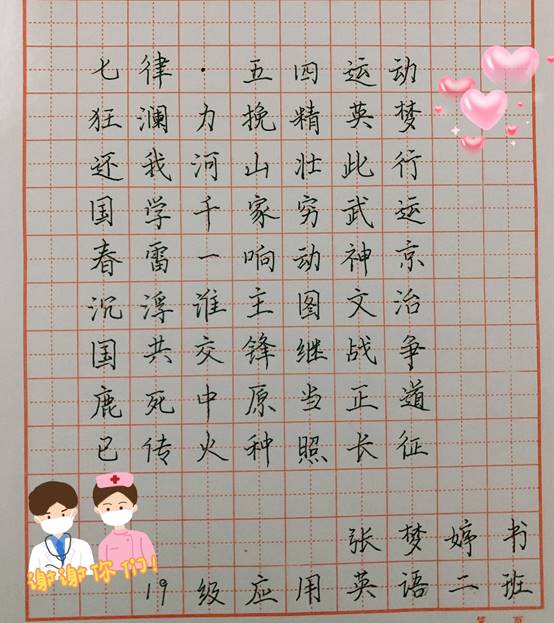 七律·五四运动
狂澜力挽精英梦
还我河山壮此行
国学千家穷武运
春雷一响动神京
沉浮谁主图文治
国共交锋继战争
鹿死中原当正道
已传火种照长征
张梦婷书
谢谢你们!
19级应用英语二班